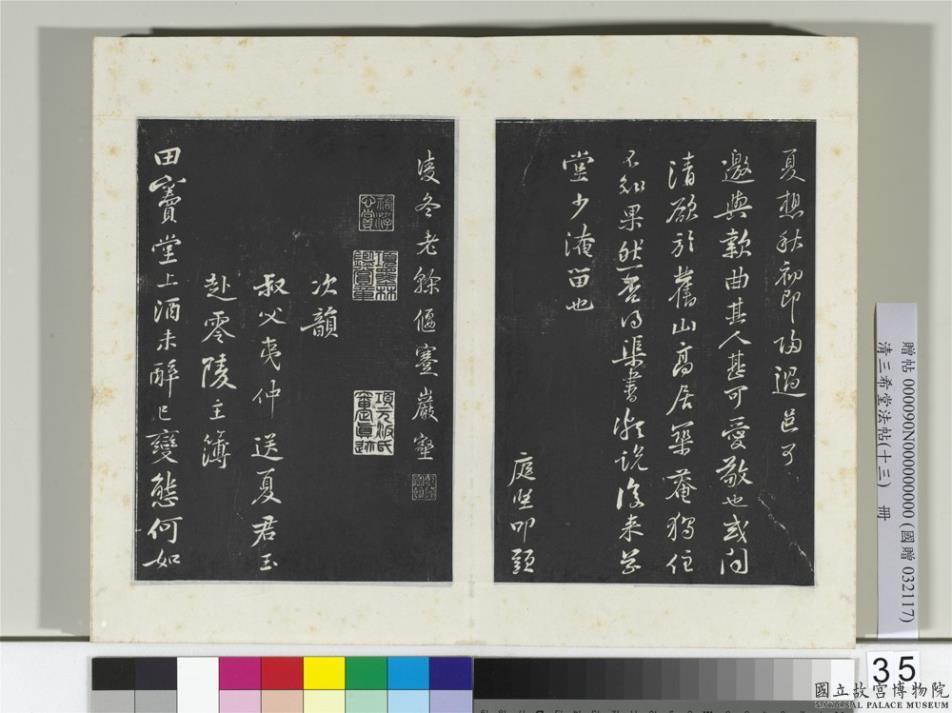 夏想秋初即歸過邑可
邀與款曲其人甚可愛敬也或聞
清欲於舊山高居築菴獨住
不知果然否得渠書
說後來草
堂少淹留也
庭堅叩頭
凌冬老餘偃蹇巖壑
項元汴氏審定真跡
次韻
叔父夷仲送夏君玉
赴零陵主簿
田竇堂上酒未醉已變態何如
贈帖 000090N000000000 (國贈 032117)
清三希堂法帖(十三) 冊
35
國立故宮博物院
NATIONAL PALACE MUSEUM